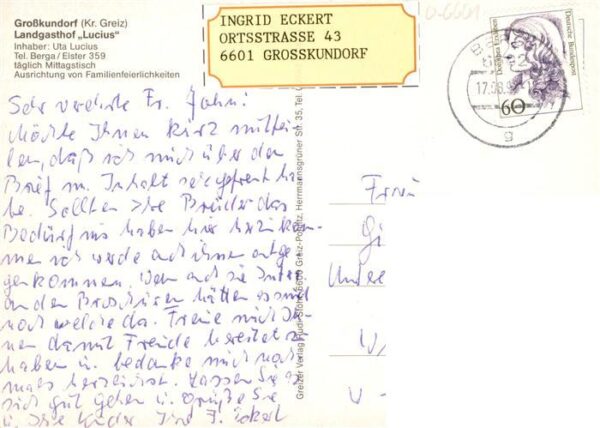 Großkundorf (Kr. Greiz)
Landgasthof „Lucius“
Inhaber: Uta Lucius
Tel. Berga/Elster 359
täglich Mittagstisch
Ausrichtung von Familienfeierlichkeiten
INGRID ECKERT
ORTSSTRASSE 43
6601 GROSSKUNDORF
0-6601
Deutsche Bundespost
60
17.08.9
g
Sehr verehrte Fr. Jahn!
Möchte Ihnen kurz mittei-
len, daß ich mich über den
Brief m. Inhalt sehr gefreut ha
be. Sollten Ihre Brüder das
Bedürfnis haben hier herzukom-
men ich werde auch ihnen entge
genkommen. Wenn auch sie Interes
an den Broschüren hätten es sind
noch welche da. Freue mich Ih-
nen damit Freude bereitet zu
haben u. bedanke mich noch
mals herzlichst. Lassen Sie es
sich gut gehen u. grüße Sie
u. Ihre Kinder Ihre I. Eckert
Greizer Verlag Rudi Stöhr, 6600 Greiz-Pohlitz, Herrmannsgrüner Str. 35, Tel.